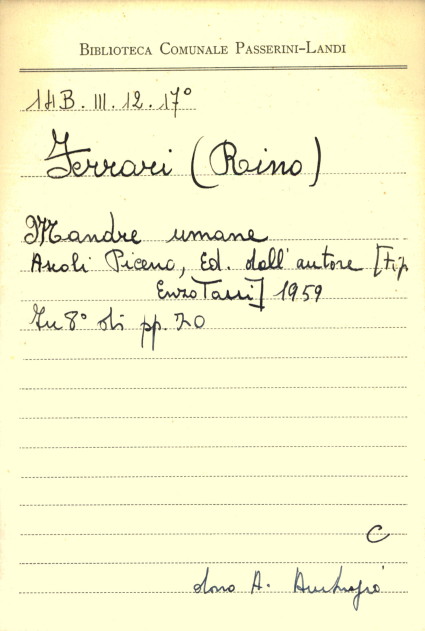 BIBLIOTECA COMUNALE PASSERINI-LANDI
1HB. III. 12. 17°
Ferrari (Rino)
Mandre umane
Ascoli Piceno, Ed. dall'autore [Tip.
Enzo Tassi] 1959
In 8° di pp. 70
C
dono A.